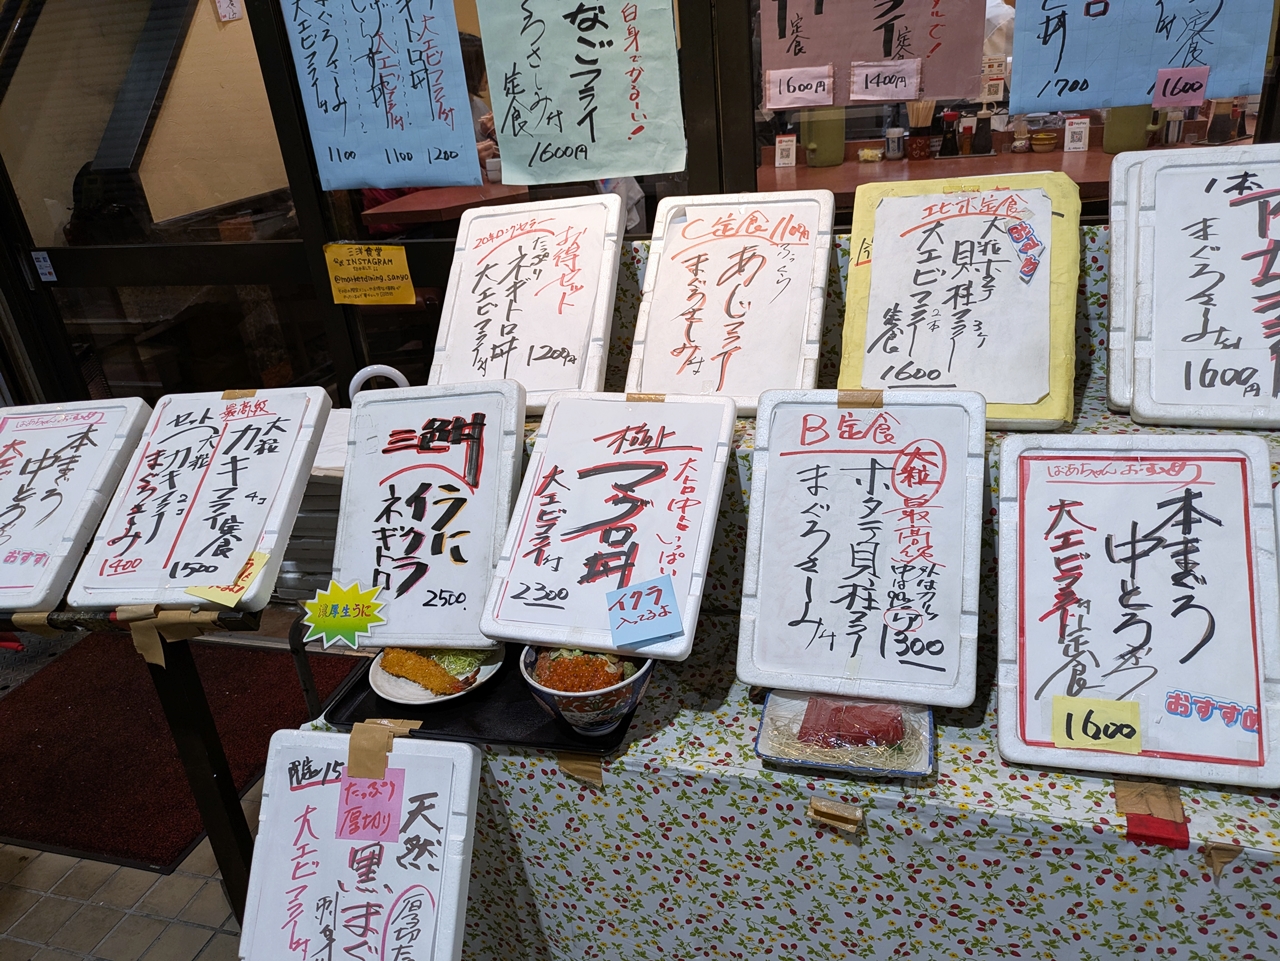 大エビフライ付
1100
1100
1200
白身でかるーい!
なごフライ
ぐろさしみ付
定食
1600円
定食
1600円
定食
1400円
丼
1700
定食
1600
三洋食堂
INSTAGRAM
@marketdining.sanyo
20年ロングセラー
お得セット
たっぷり
ネギトロ丼
大エビフライ付
1200円
C定食 1100円
ふっくら
あじフライ
まぐろさしみ付
エビホ定食
おすすめ
大粒ホタテ
貝柱フライ 3ケ
大エビフライ 2本
定食
1600
1本
まぐろさしみ付
1600円
ばあちゃんおすすめ
本まぐろ
中とろ
おすすめ
最高級
大粒
カキフライ定食
4コ
1500
セット
大粒
カキフライ 2コ
まぐろさしみ
1400
三色丼
生うに
イクラ
ネギトロ
2500
濃厚生うに
極上
大トロ中とろいっぱい
マグロ丼
大エビフライ付
2300
イクラ
入ってるよ
B定食
大粒
最高級
外はカリッ
中は
ホタテ貝柱フライ
まぐろさしみ付
1300
ばあちゃんおすすめ
本まぐろ
中とろ
大エビフライ付定食
1600
おすすめ
限定15
たっぷり
厚切り
天然
黒まぐ
刺身
大エビフライ付